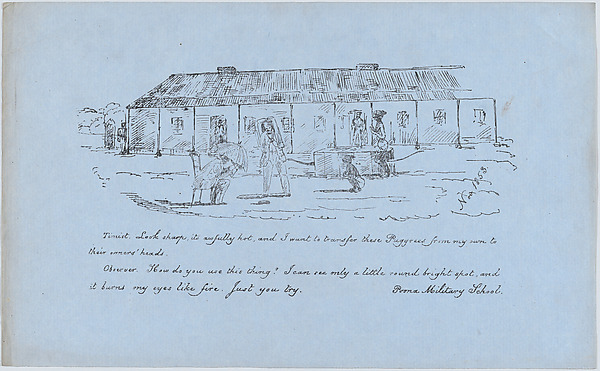 Nov 1868
Timist. Look sharp, it's awfully hot, and I want to transfer these Puggrees from my own to
their owners' heads.
Observer. How do you use this thing? I can see only a little round bright spot, and
it burns my eyes like fire. Just you try.
Poona Military School.